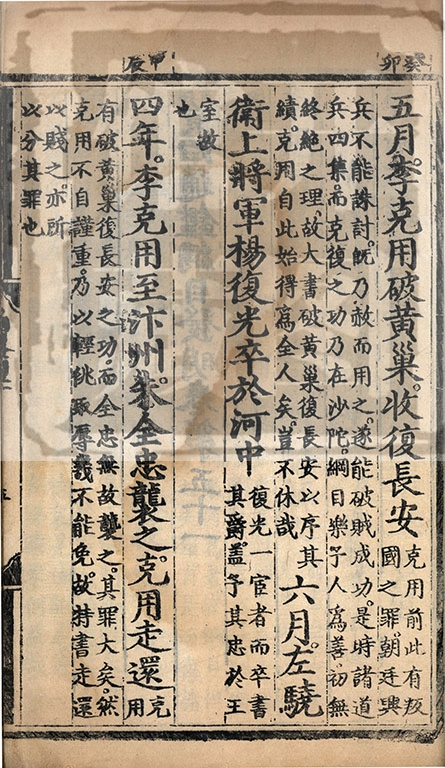 癸卯
甲辰
五月。李克用破黃巢。收復長安
克用前此有叛
國之罪。朝廷興
兵不能誅討。旣乃赦而用之。遂能破賊成功。是時諸道
兵四集。而克復之功乃在沙陀。綱目樂予人爲善。初無
終絕之理。故大書破黃巢復長安以序其
績。克用自此始得爲全人矣。豈不休哉
六月。左驍
衛上將軍楊復光卒於河中
復光一宦者而卒書
其爵。蓋予其忠於王
室故
也
四年。李克用至汴州。朱全忠襲之。克用走還
克
用
有破黃巢復長安之功。而全忠無故襲之。其罪大矣。然
克用不自謹重。乃以輕佻辱幾不能免。故特書走還
以賤之。亦所
以分其罪也